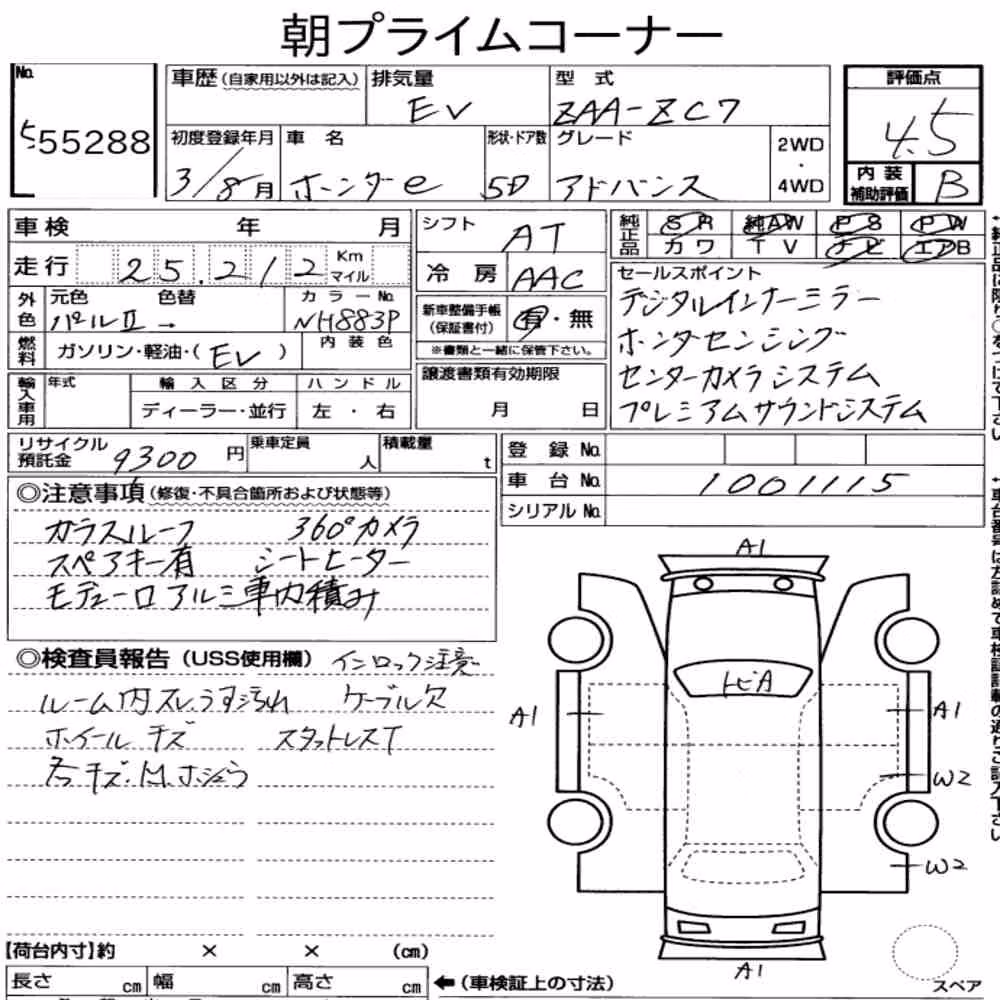 朝プライムコーナー
No. 55288
車歴(自家用以外は記入) 排気量 EV 型式 ZAA-ZC7
評価点 4.5
初度登録年月 3/8月 車名 ホンダe 形状・ドア数 5D グレード アドバンス 2WD・4WD
内装補助評価 B
車検 年 月
走行 25,212 Km マイル
シフト AT
冷房 AAC
純正品 SR 純AW PS PW
カワ TV ナビ エアB
外色 元色 パールII → 色替 カラーNo. NH883P
内装色
燃料 ガソリン・軽油・( EV )
新車整備手帳(保証書付) 有・無
※書類と一緒に保管下さい。
セールスポイント
デジタルインナーミラー
ホンダセンシング
センターカメラシステム
プレミアムサウンドシステム
輸入車用 年式 輸入区分 ディーラー・並行 ハンドル 左・右
譲渡書類有効期限 月 日
リサイクル預託金 9300 円 乗車定員 人 積載量 t
登録No.
車台No. 1001115
シリアルNo.
◎注意事項(修復・不具合箇所および状態等)
ガラスルーフ 360°カメラ
スペアキー有 シートヒーター
モデューロアルミ車内積み
◎検査員報告(USS使用欄) インロック注意
ルーム内スレ、うす汚れ ケーブル欠
ホイールキズ スタットレスT
各キズ・M.ホシュウ
A1
トビA
A1
A1
W2
W2
A1
スペア
【荷台内寸】約 × × (cm)
長さ cm 幅 cm 高さ cm ←(車検証上の寸法)